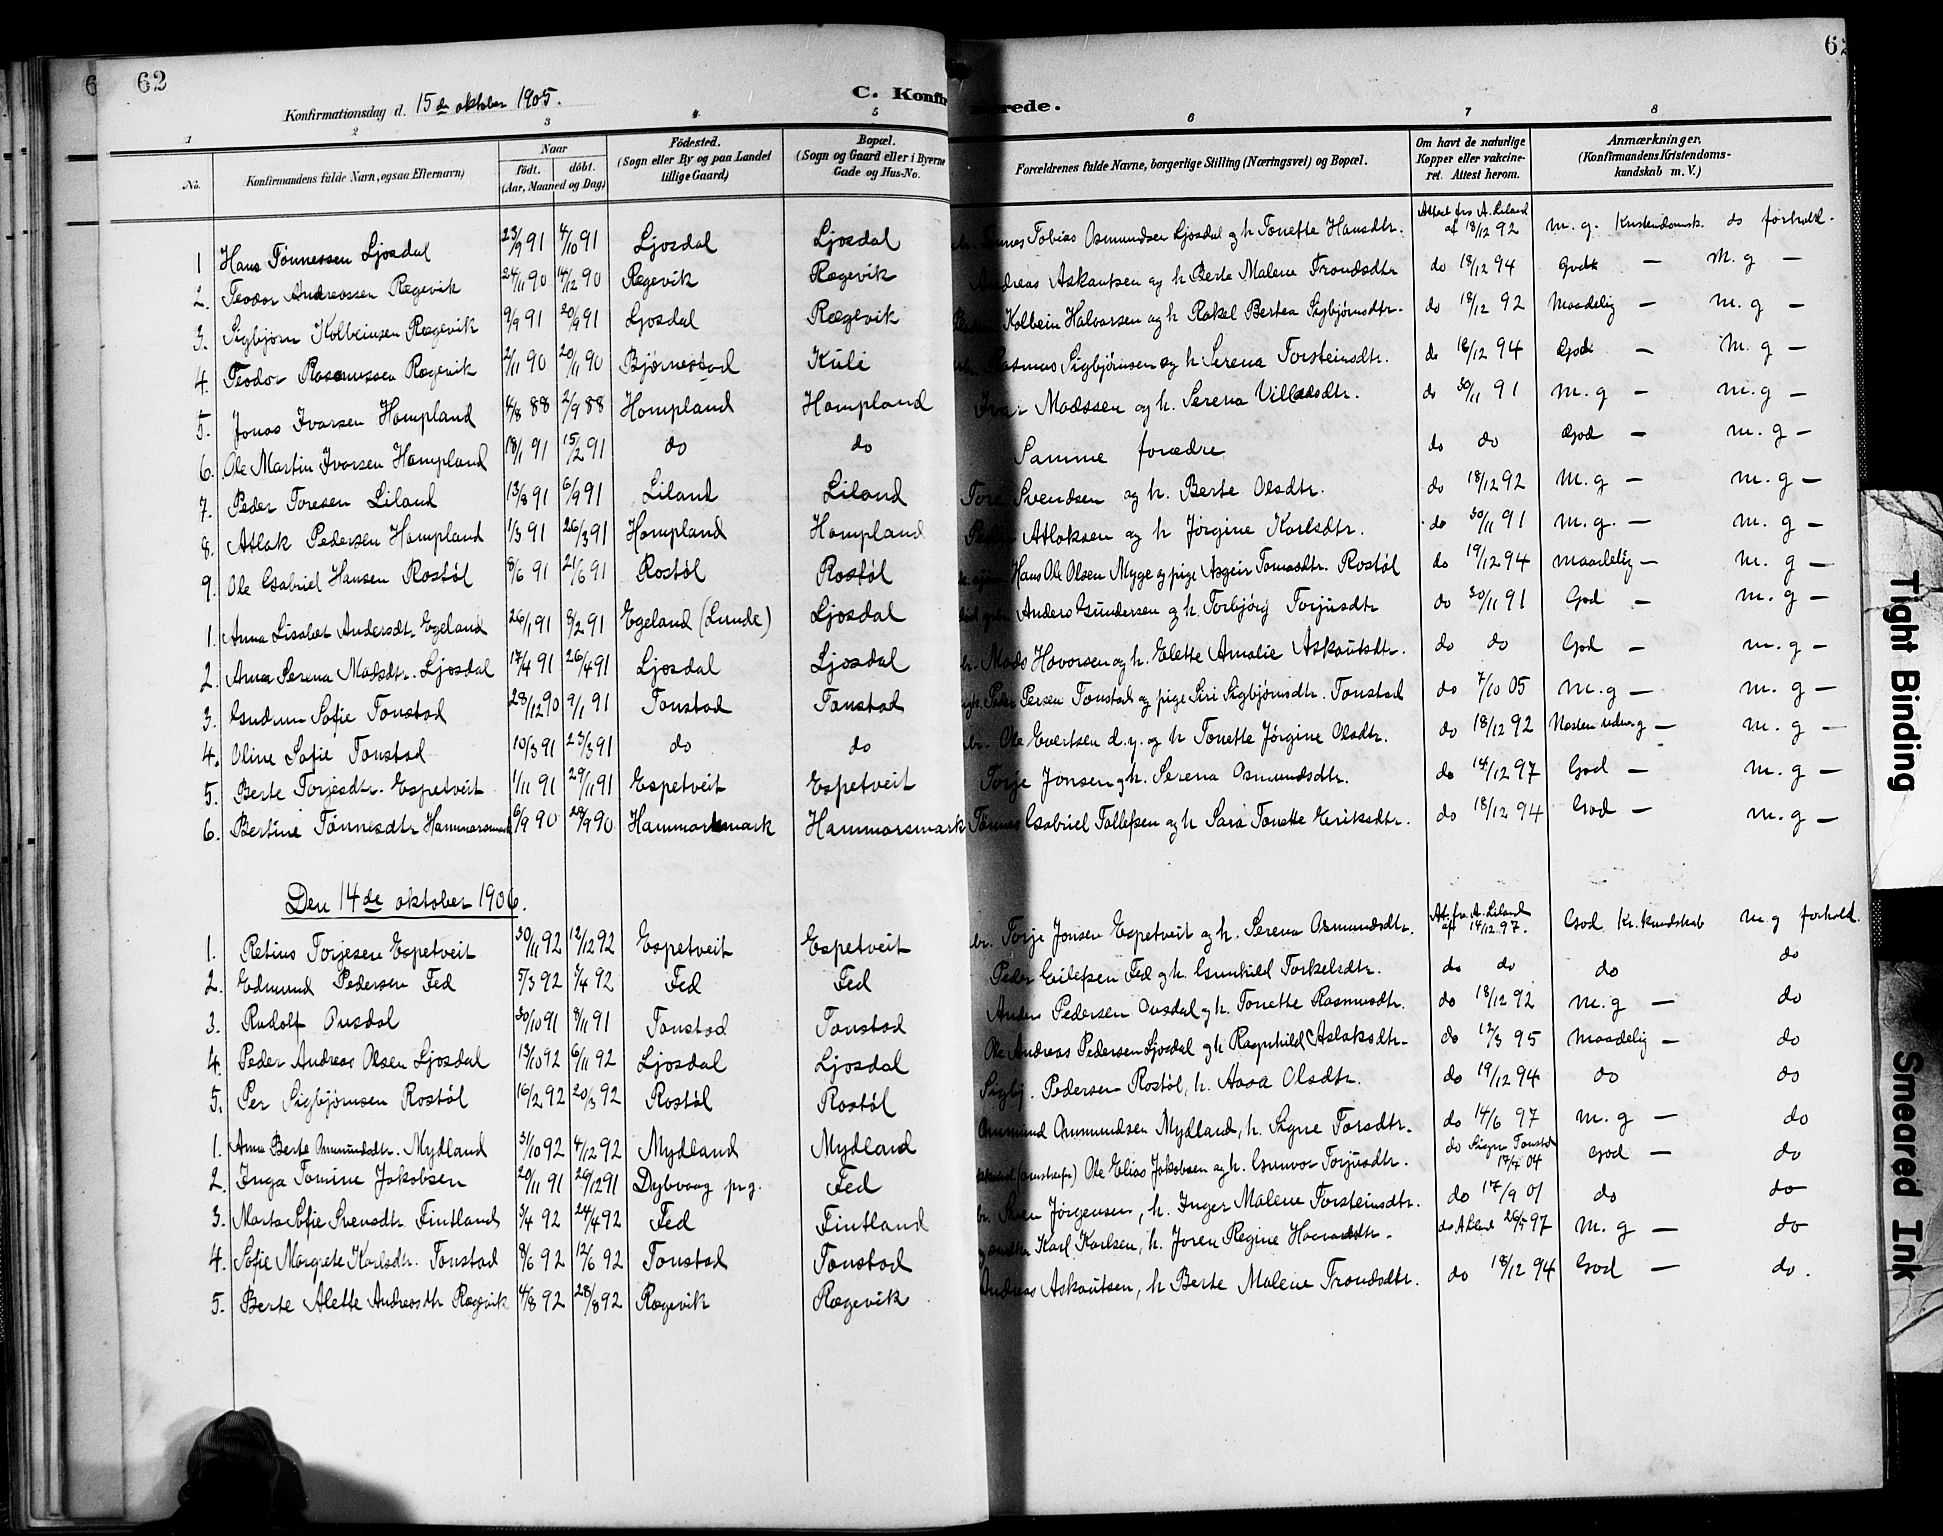 6 62
62
Konfirmationsdag d. 15de oktober 1905.
C. Konfir rede.
1 2 3 4 5 6 7 8
No.
Konfirmandens fulde Navn, ogsaa Efternavn)
Naar
født. døbt.
(Aar, Maaned og Dag)
Födested.
(Sogn eller By og paa Landet
tillige Gaard)
Bopæl.
(Sogn og Gaard eller i Byerne
Gade og Hus-No.
Forældrenes fulde Navne, borgerlige Stilling (Næringsvei) og Bopæl.
Om havt de naturlige
Kopper eller vakcine-
ret. Attest herom.
Anmærkninger.
(Konfirmandens Kristendoms-
kundskab m. V.)
1 Hans Tønnessen Ljosdal 23/9 91 4/10 91 Ljosdal Ljosdal Tobias Osmundsen Ljosdal og h Tonette Hansdtr. Attest fra A. Liland af 18/12 92 m. g. Kristendomsk. do forhold.
2. Teodor Andreassen Rægevik 24/11 90 14/12 90 Rægevik Rægevik Andreas Askautsen og h Berte Malene Trondsdtr do 18/12 94 Godt — m. g —
3. Sigbjørn Kolbeinsen Rægevik 9/9 91 20/9 91 Ljosdal Rægevik Kolbein Halvorsen og h Rakel Bertea Sigbjørnsdtr. do 18/12 92 Maadelig — m. g —
4. Teodor Rasmussen Rægevik 2/11 90 20/11 90 Bjørnestad Kuli Rasmus Sigbjørnsen og h Serena Torsteinsdtr. do 18/12 94 God — m. g —
5. Jonas Ivarsen Hompland 4/8 88 2/9 88 Hompland Hompland Ivar Madssen og h. Serena Villadsdtr. do 30/11 91 m. g — m. g —
6. Ole Martin Ivarsen Hompland 18/1 91 15/2 91 do do Samme forædre do do God — m. g —
7. Peder Toresen Liland 13/8 91 6/9 91 Liland Liland Tore Svendsen og h. Berte Olsdtr. do 18/12 92 M. g — m. g —
8. Atlak Pedersen Hompland 1/3 91 26/3 91 Hompland Hompland Peder Atlaksen og h Jørgine Karlsdtr. do 30/11 91 m. g. — m. g —
9. Ole Gabriel Hansen Rostøl 8/6 91 21/6 91 Rostøl Rostøl Hans Ole Olsen Myge og pige Asgeir Tomasdtr. Rostøl do 19/12 94 maadelig — m. g —
1. Anna Lisabet Andersdtr. Egeland 26/1 91 8/2 91 Egeland (Lunde) Ljosdal Anders Gundersen og h. Torbjørg Torjusdtr do 30/11 91 God — m. g —
2. Anna Serena Madsdtr. Ljosdal 17/4 91 26/4 91 Ljosdal Ljosdal Mads Havorsen og h. Elette Amalie Askautsdtr. do do God — m. g —
3. Gudrun Sofie Tonstad 28/12 90 9/1 91 Tonstad Tonstad Peder Persen Tonstad og pige Siri Sigbjørnsdtr. Tonstad do 7/10 05 M. g — m. g —
4. Oline Sofie Tonstad 10/3 91 23/3 91 do do Ole Evertsen d. y. og h Tonette Jørgine Olsdtr. do 18/12 92 Næsten udm. g — m. g —
5. Berte Torjesdtr. Espetveit 1/11 91 29/11 91 Espetveit Espetveit Torje Jonsen og h. Serena Osmundsdtr. do 14/12 97 God — m. g —
6. Bertine Tønnesdtr Hammarsmark 6/9 90 28/9 90 Hammarsmark Hammarsmark Tønnes Gabriel Tollefsen og h Sara Tonette Eriksdtr. do 18/12 94 God — m. g —
Den 14de oktober 1906.
1. Retius Torjesen Espetveit 30/11 92 12/12 92 Espetveit Espetveit Torje Jonsen Espetveit og h. Serena Osmundsdtr. At. fra A. Liland aft 14/12 97. God Kr. kundskab m. g forhold.
2. Edmund Pedersen Fed 5/3 92 5/4 92 Fed Fed Peder Eilefsen Fed og h. Gunhild Torkelsdtr. do do do do
3. Rudolf Ousdal 30/10 91 8/11 91 Tonstad Tonstad Anders Pedersen Ousdal og h. Tonette Rasmusdtr. do 18/12 92 m. g — do
4. Peder Andreas Olsen Ljosdal 13/10 92 6/11 92 Ljosdal Ljosdal Ole Andreas Pedersen Ljosdal og h Ragnhild Aslaksdtr. do 12/3 95 Maadelig — do
5. Per Sigbjørnsen Rostøl 16/2 92 20/3 92 Rostøl Rostøl Sigbj. Pedersen Rostøl, h. Aasa Olsdtr. do 19/12 94 do do
1. Anna Berte Ommundsdtr. Mydland 31/10 92 4/12 92 Mydland Mydland Ommund Ommundsen Mydland, h. Signe Torsdtr. do 14/6 97 m. g — do
2. Inga Tomine Jakobsen 20/11 91 26/12 91 Dybvaag prg. Fed Ole Elias Jakobsen og h. Gunvor Torjusdtr. do Signe Tonstad 17/7 04 God — do
3. Marta Sofie Svensdtr. Fintland 3/4 92 24/4 92 Fed Fintland Sven Jørgensen, h. Inger Malene Torsteinsdtr. do 17/9 01 do do
4. Sofie Margrete Karlsdtr. Tonstad 8/6 92 12/6 92 Tonstad Tonstad Karl Karlsen, h. Joren Regine do A Liland 26/5 97 m. g — do
5. Berte Alette Andreasdtr Rægevik 4/8 92 28/8 92 Rægevik Rægevik Andreas Askautsen, h Berte Malene Trondsdtr. do 18/12 94 God — do.
Tight Binding
Smeared Ink